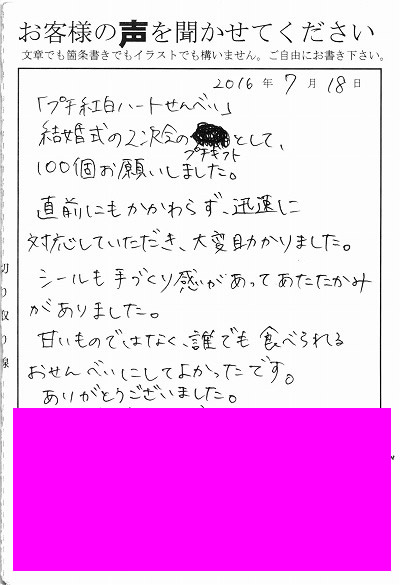 お客様の声を聞かせてください
文章でも箇条書きでもイラストでも構いません。ご自由にお書き下さい。
2016年7月18日
「プチ紅白ハートせんべい」
結婚式の2次会のプチギフトとして、
100個お願いしました。
直前にもかかわらず、迅速に
対応していただき、大変助かりました。
シールも手づくり感があってあたたかみ
がありました。
甘いものではなく、誰でも食べられる
おせんべいにしてよかったです。
ありがとうございました。
切り取り線